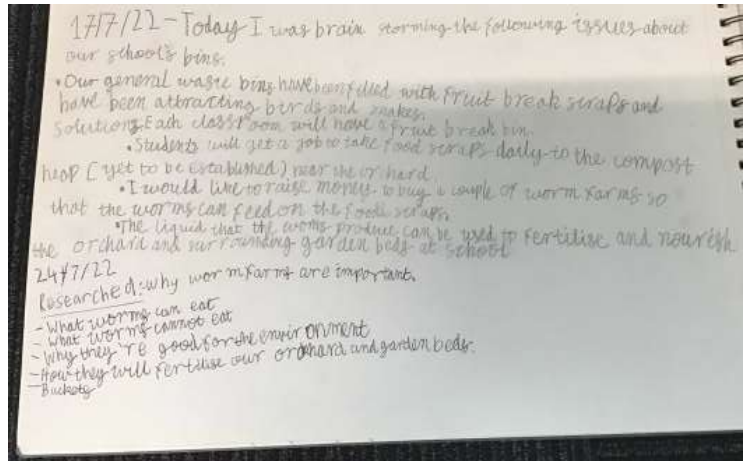 17/7/22 - Today I was brain storming the following issues about
our school's bins.
• Our general waste bins have been filled with fruit break scraps and
have been attracting birds and snakes.
Solutions: Each classroom will have a fruit break bin.
• Students will get a job to take food scraps daily to the compost
heap (yet to be established) near the orchard.
• I would like to raise money to buy a couple of worm farms so
that the worms can feed on the food scraps.
• The liquid that the worms produce can be used to fertilise and nourish
the orchard and surrounding garden beds at school
24/7/22
Researched: why worm farms are important.
- What worms can eat
- What worms cannot eat
- Why they're good for the environment
- How they will fertilise our orchard and garden beds.
- Buckets